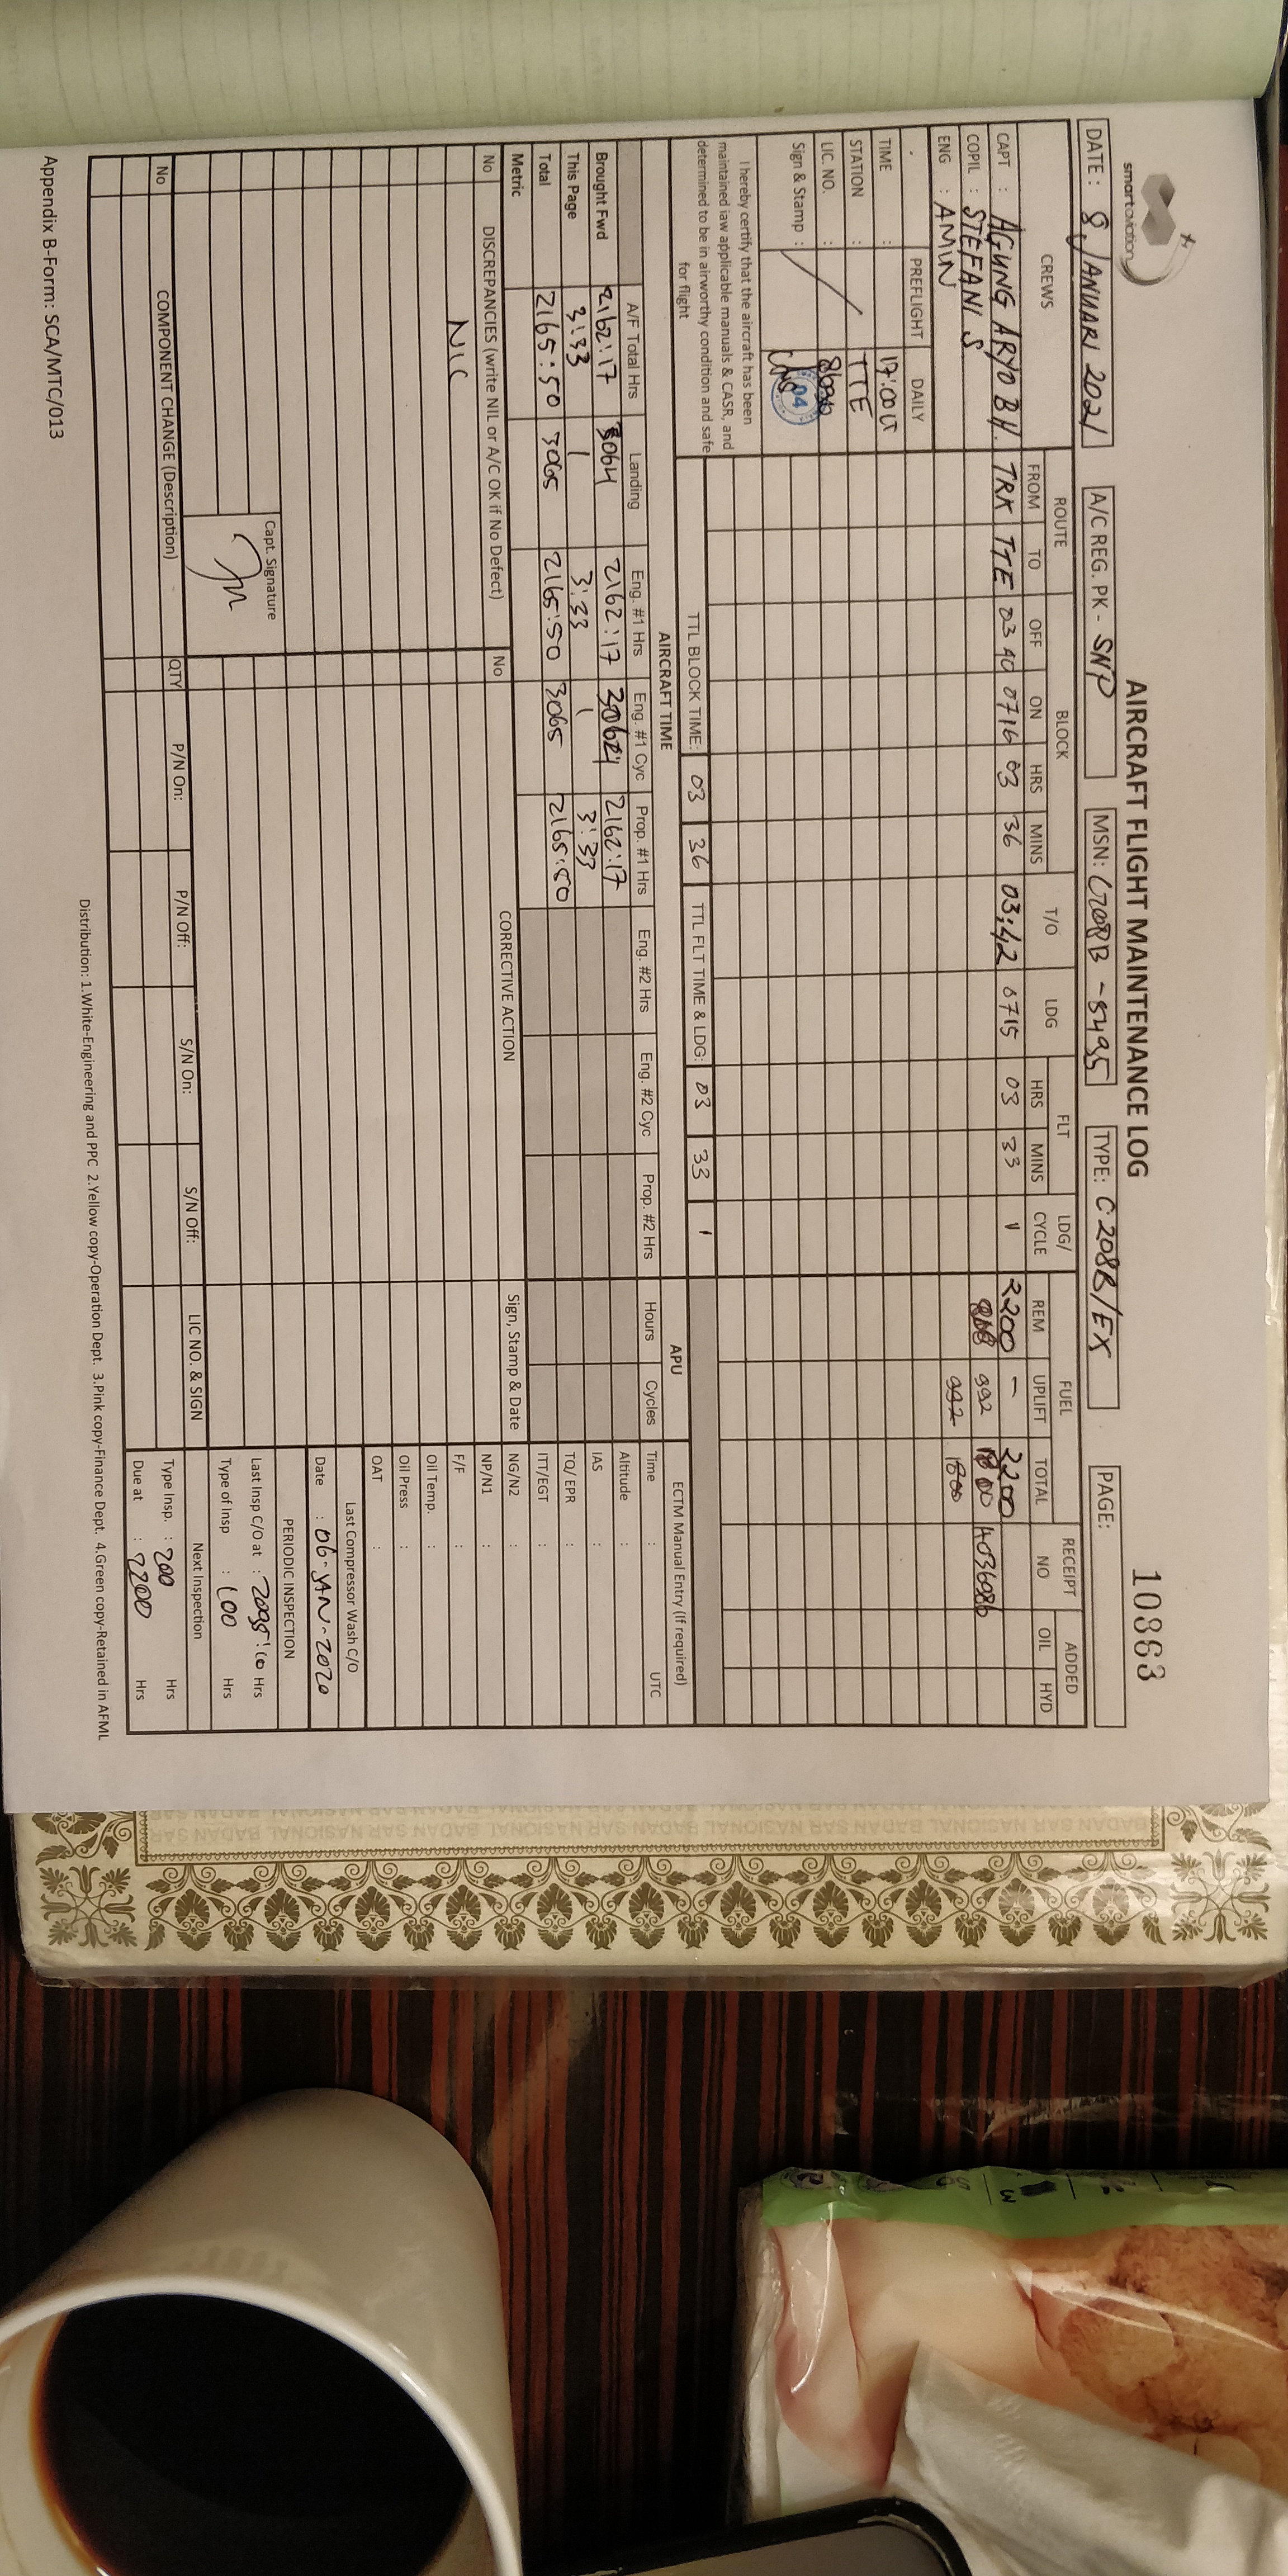 smart aviation
AIRCRAFT FLIGHT MAINTENANCE LOG
10363
DATE : 8 JANUARI 2021 A/C REG. PK - SNP MSN: C208B -5495 TYPE: C208B/EX PAGE:
CREWS ROUTE BLOCK T/O LDG FLT LDG/ CYCLE FUEL RECEIPT NO ADDED
FROM TO OFF ON HRS MINS HRS MINS REM UPLIFT TOTAL OIL HYD
CAPT : AGUNG ARYO BH. TRK TTE 03 40 0716 03 36 03:42 0715 03 33 1 2200 – 2200
COPIL : STEFANI S. 992
ENG : AMIN 992 1800
PREFLIGHT DAILY
TIME : 17:00 U
STATION : TTE
LIC. NO. :
Sign & Stamp : 04
I hereby certify that the aircraft has been
maintained law applicable manuals & CASR, and
determined to be in airworthy condition and safe
for flight
TTL BLOCK TIME: 03 36 TTL FLT TIME & LDG: 03 33 1
AIRCRAFT TIME APU ECTM Manual Entry (If required)
A/F Total Hrs Landing Eng. #1 Hrs Eng. #1 Cyc Prop. #1 Hrs Eng. #2 Hrs Eng. #2 Cyc Prop. #2 Hrs Hours Cycles Time : UTC
Brought Fwd 2162:17 3064 2162:17 3064 2162:17 Altitude :
This Page 3:33 1 3:33 1 3:33 IAS :
Total 2165:50 3065 2165:50 3065 2165:50 TQ/ EPR :
Metric ITT/EGT :
No DISCREPANCIES (write NIL or A/C OK if No Defect) No CORRECTIVE ACTION Sign, Stamp & Date NG/N2 :
NP/N1 :
NIL F/F :
Oil Temp. :
Oil Press :
OAT :
Last Compressor Wash C/O
Date : 06-JAN-2020
PERIODIC INSPECTION
Capt. Signature
Last Insp C/O at : Hrs
Type of Insp : 100 Hrs
Next Inspection
No COMPONENT CHANGE (Description) QTY P/N On: P/N Off: S/N On: S/N Off: LIC NO. & SIGN
Type Insp. : 200 Hrs
Due at : 2200 Hrs
Appendix B-Form: SCA/MTC/013
Distribution: 1.White-Engineering and PPC 2.Yellow copy-Operation Dept. 3.Pink copy-Finance Dept. 4.Green copy-Retained in AFML
BADAN SAR NASIONAL BADAN SAR NASIONAL BADAN SAR NASIONAL BADAN SAR NASIONAL